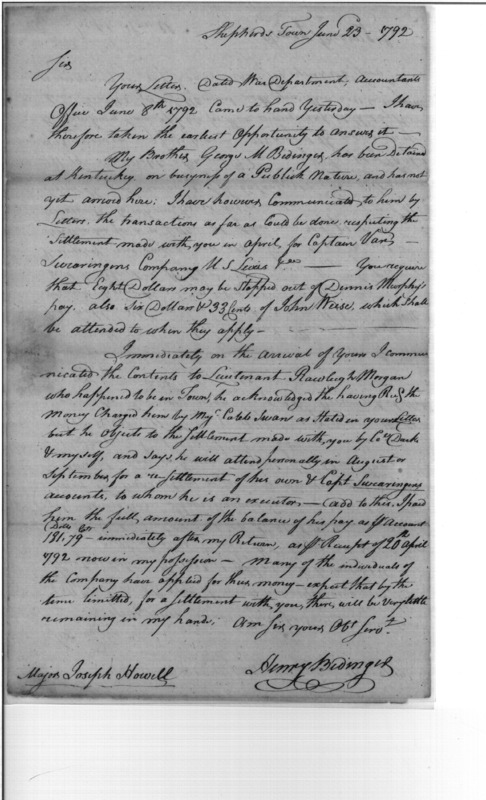 Shepherds Town June 23 - 1792
Sir
Yours Letter, Dated War Department, Accountants
Office June 8th 1792 Came to hand Yesterday — I have
therefore taken the earliest Opportunity to answer it —
My Brother, George M Bedinger, has been Detained
at Kentucky, on busyness of a Publick Nature, and has not
yet arrived here; I have however Communicated to him by
Letters, the transactions as far as Could be done, respecting the
Settlement made with you in April, for Captain Van
Swearingens Company U S Levies — You require
that Eight Dollars may be stopped out of Dennis Murphy's
pay, also Six Dollars & 33 Cents of John Wise, which shall
be attended to when they apply —
Immediately on the arrival of Yours I commu
nicated the Contents to Lieutenant Rawleigh Morgan
who happened to be in Town, he acknowledged the having Recd the
Money Charged him by Majr Caleb Swan as Stated in your Letter
but he objects to the Settlement made with you by Coll Darke
& myself, and says, he will attend personally in August or
September, for a re-Settlement of his own & Capt Swearingens
accounts, to whom he is an executor, — add to this, I paid
him the full amount of the balance of his pay as Pr Account
Dolls Cts
181,,79 — immediately after my Return, as Pr Receipt of 20th April
1792 now in my possession — Many of the individuals of
the Company have applied for their money — expect that by the
time limitted, for a Settlement with you, there will be very little
remaining in my hands, Am Sir yours Obt Servt
Henry Bedinger
Major Joseph Howell